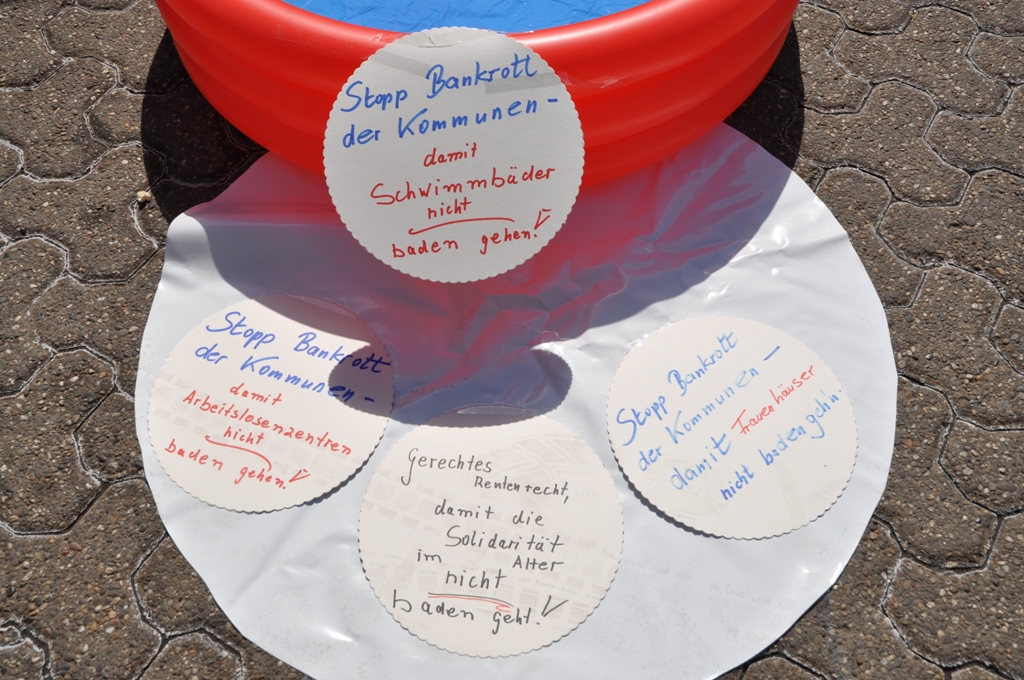 Stopp Bankrott
der Kommunen -
damit
Schwimmbäder
nicht
baden gehen!
Stopp Bankrott
der Kommunen -
damit
Arbeitslosenzentren
nicht
baden gehen!
Gerechtes
Rentenrecht,
damit die
Solidarität
im Alter
nicht
baden geht!
Stopp Bankrott
der Kommunen -
damit Frauenhäuser
nicht baden geh'n